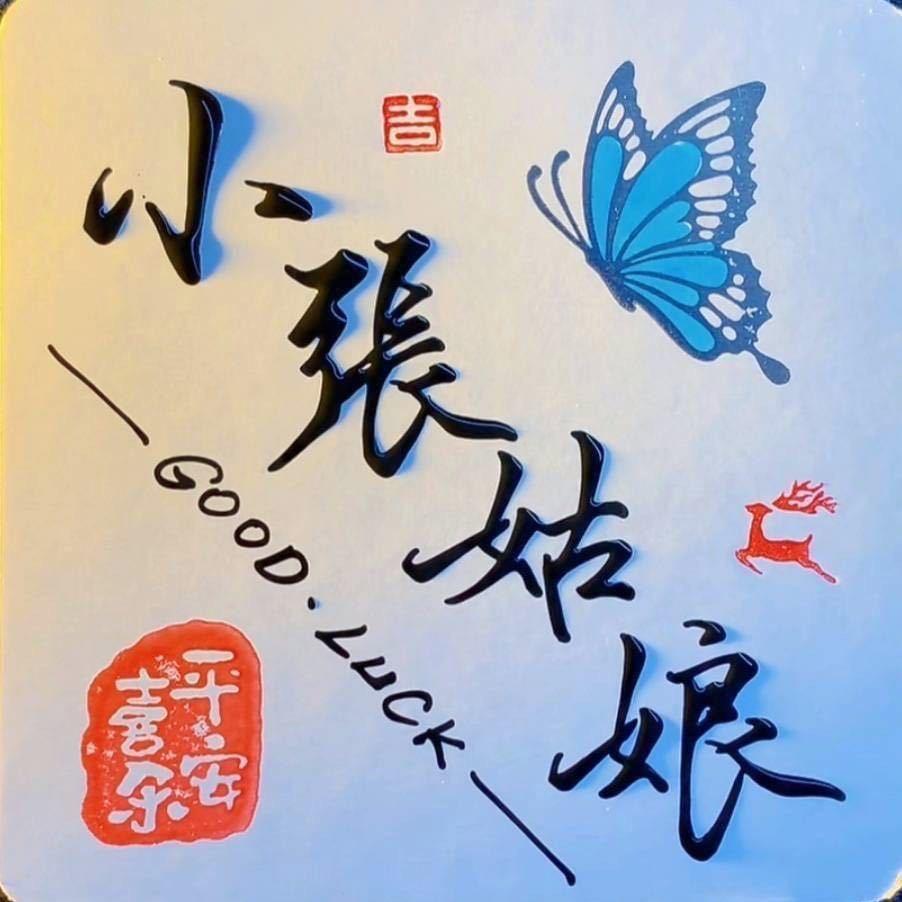 吉
小張姑娘
GOOD.LUCK
平安
喜乐